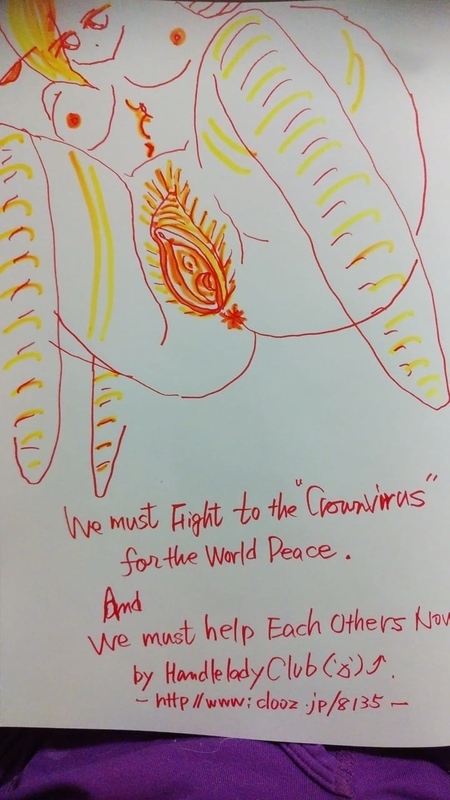 We must Fight to the "Crownvirus"
for the World Peace.
And
We must help Each Others Now
by Handlelady Club (
- http://www: clooz.jp/8135 -